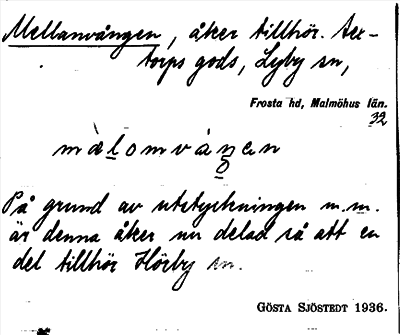 Mellanvången, åker tillhör. Ax-
torps gods, Lyby sn,
Frosta hd, Malmöhus län.
32
mèlomvåŋen
På grund av utstyckningen m.m.
är denna åker nu delad så att en
del tillhör Hörby sn.
GÖSTA SJÖSTEDT 1936.